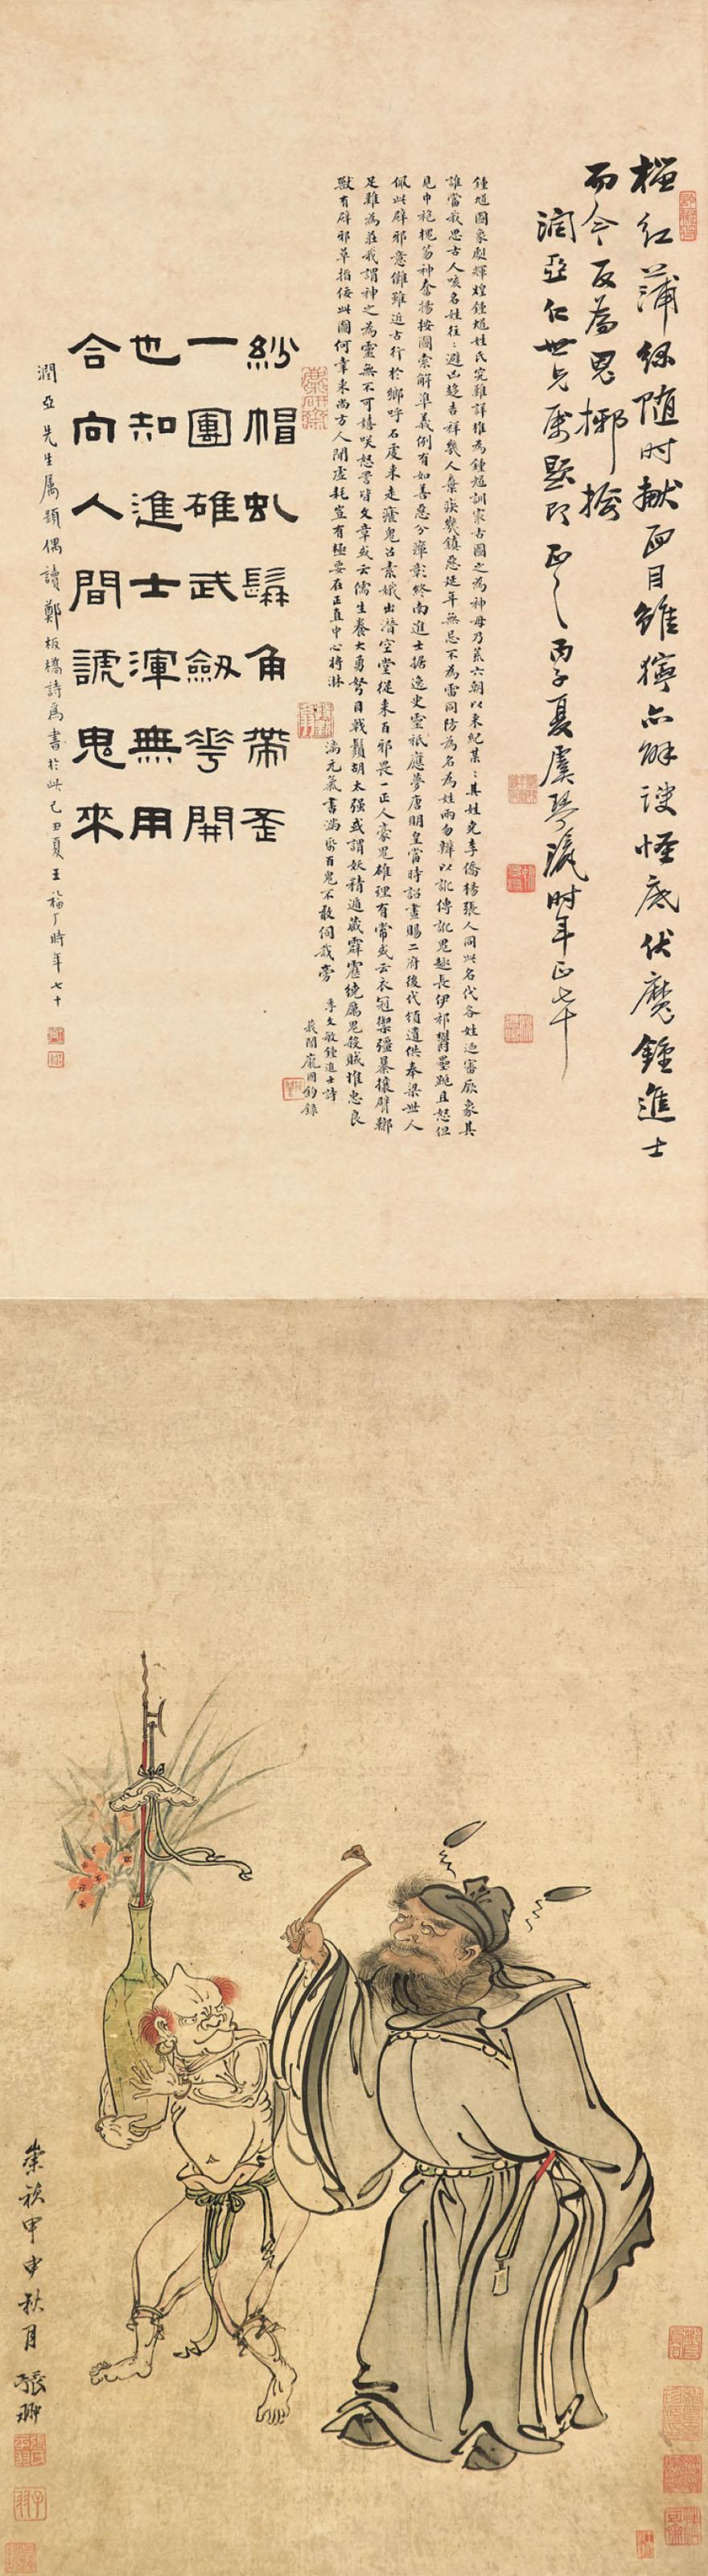 榴红蒲绿随时献面目虽狞亦解谀怪底伏魔鍾進士
而今反為鬼揶揄
潤亞仁世兄屬題即正之丙子夏虞琴 时年正七十
鍾馗圖象劇輝煌鍾馗姓氏究難詳推為鍾馗訓家古圖之為神毋乃荒六朝以來紀某某其姓堯李僑楊張人同此名代各姓迺審厥象其
誰當我思古人咳名姓往往避凶趨吉祥幾人棄疾幾鎮惡延年無忌不為雷同防為名為姓兩勿辨以訛傳訛鬼趣長伊祁鬱壘跳且怒但
見巾袍槐笏神奮揚按圖索解準義例有如善惡分癉彰終南進士據逸史靈祇應夢唐明皇當時詔畫賜二府後代頒遺供奉梁世人
佩此辟邪意儺雖近古行於鄉呼石虔來走瘧鬼召素娥出潛空堂從來百邪畏一正人豪鬼雄理有常或云衣冠禦彊暴攘臂鄰
足難為莊我謂神之為靈無不可嬉咲怒罵皆文章或云儒生養大勇努目戟鬚胡太强或謂妖精遁藏霹靂繞厲鬼殺賊推忠良
獸有辟邪草指佞此圖何幸來尚方人間虛耗豈有極要在正直中心將淋
漓元氣書滿紙百鬼不敢伺我旁 李文敏鍾進士詩
龐國鈞錄
紗帽虬髯角帶歪
一團雄武劔花開
也知進士渾無用
合向人間諕鬼來
潤亞先生屬題偶讀鄭板橋詩為書於此己丑夏王福厂時年七十
崇禎甲申秋月張翀